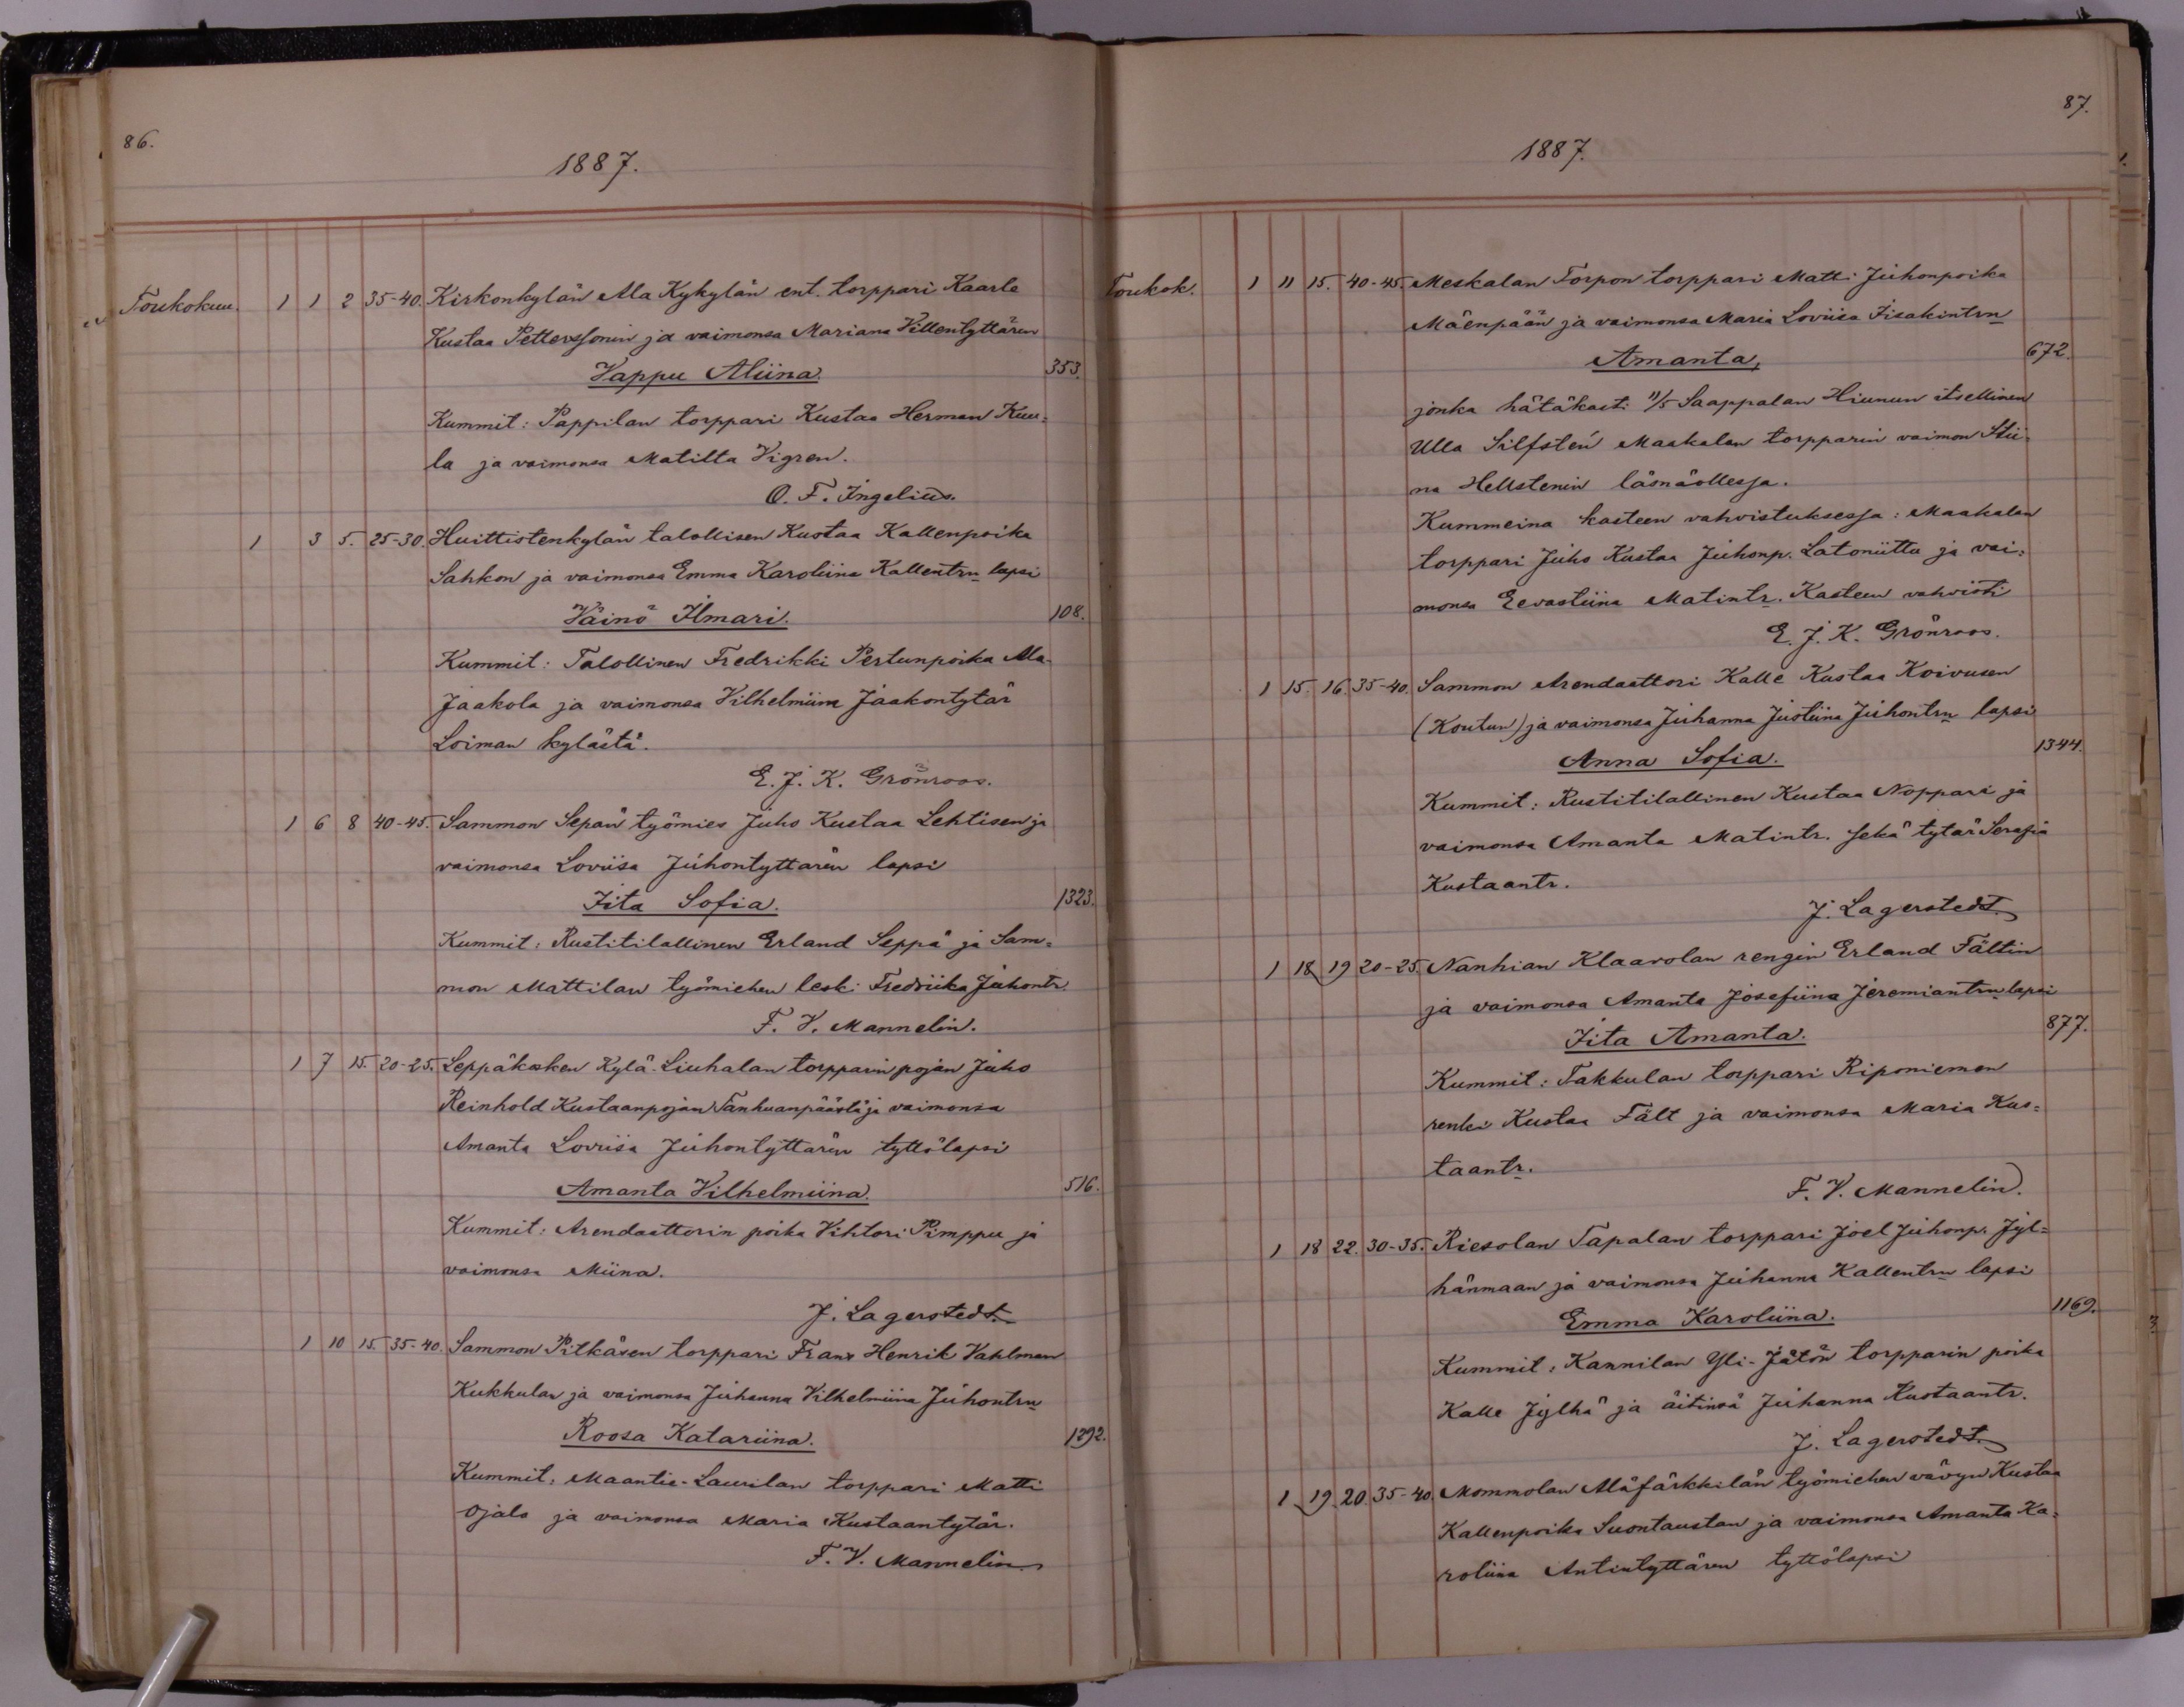 86.
1887.
Toukokuu. 1 1 2 35-40. Kirkonkylän Ala Kykylän ent. torppari Kaarle
Kustaa Petterssonin ja vaimonsa Mariana Villentyttären
Vappu Aliina. 353.
Kummit: Pappilan torppari Kustaa Herman Kuu-
la ja vaimonsa Matilta Vigren.
O. F. Ingelius.
1 3 5. 25-30. Huittistenkylän talollisen Kustaa Kallenpoika
Sahkon ja vaimonsa Emma Karoliina Kallentrn lapsi
Väinö Ilmari. 108.
Kummit: Talollinen Fredrikki Pertunpoika Ala-
Jaakola ja vaimonsa Vilhelmiina Jaakontytär
Loiman kylästä.
E. J. K. Grönroos.
1 6 8 40-45. Sammon Sepän työmies Juho Kustaa Lehtisen ja
vaimonsa Loviisa Juhontyttären lapsi
Iita Sofia. 1323.
Kummit: Rustitilallinen Erland Seppä ja Sam-
mon Mattilan työmiehen leski Fredriika Juhontr.
F. V. Mannelin.
1 7 15. 20-25. Leppäkosken Kylä-Liuhalan torpparin pojan Juho
Reinhold Kustaanpojan Tanhuanpäästä ja vaimonsa
Amanta Loviisa Juhontyttären tyttölapsi
Amanta Vilhelmiina. 516.
Kummit: Arendaattorin poika Vihtori Pimppu ja
vaimonsa Miina.
J. Lagerstedt.
1 10 15. 35-40. Sammon Pitkäsen torppari Frans Henrik Vahlman
Kukkulan ja vaimonsa Juhanna Vilhelmiina Juhontrn
Roosa Katariina. 1292.
Kummit: Maantie-Laurilan torppari Matti
Ojala ja vaimonsa Maria Kustaantytär.
F. V. Mannelin.
87.
1887.
Toukok. 1 11 15. 40-45. Meskalan Torpon torppari Matti Juhonpoika
Mäenpään ja vaimonsa Maria Loviisa Iisakintrn
Amanta, 672.
jonka hätäkasti 11/5 Saappalan Hiunun itsellinen
Ulla Silfstén Maakalan torpparin vaimon Stii-
na Hellstenin läsnäollessa.
Kummeina kasteen vahvistuksessa: Maakalan
torppari Juho Kustaa Juhonp. Latoniittu ja vai-
monsa Eevastiina Matintr. Kasteen vahvisti
E. J. K. Grönroos.
1 15. 16. 35-40. Sammon Arendaattori Kalle Kustaa Koivusen
(Koutun) ja vaimonsa Juhanna Justiina Juhontrn lapsi
Anna Sofia. 1344.
Kummit: Rustitilallinen Kustaa Noppari ja
vaimonsa Amanta Matintr. sekä tytär Serafia
Kustaantr.
J. Lagerstedt.
1 18 19 20-25. Nanhian Klaavolan rengin Erland Fältin
ja vaimonsa Amanta Josefiina Jeremiantrn lapsi
Iita Amanta. 877.
Kummit: Takkulan torppari Riponiemen
renki Kustaa Fält ja vaimonsa Maria Kus-
taantr.
F. V. Mannelin.
1 18 22. 30-35. Riesolan Tapalan torppari Joel Juhonp. Jyl-
hänmaan ja vaimonsa Juhanna Kallentrn lapsi
Emma Karoliina. 1169.
Kummit: Kannilan Yli-Jätön torpparin poika
Kalle Jylhä ja äitinsä Juhanna Kustaantr.
J. Lagerstedt.
1 19. 20. 35-40. Mommolan Aläfärkkilän työmiehen vävyn Kustaa
Kallenpoika Suontaustan ja vaimonsa Amanta Ka-
roliina Antintyttären tyttölapsi